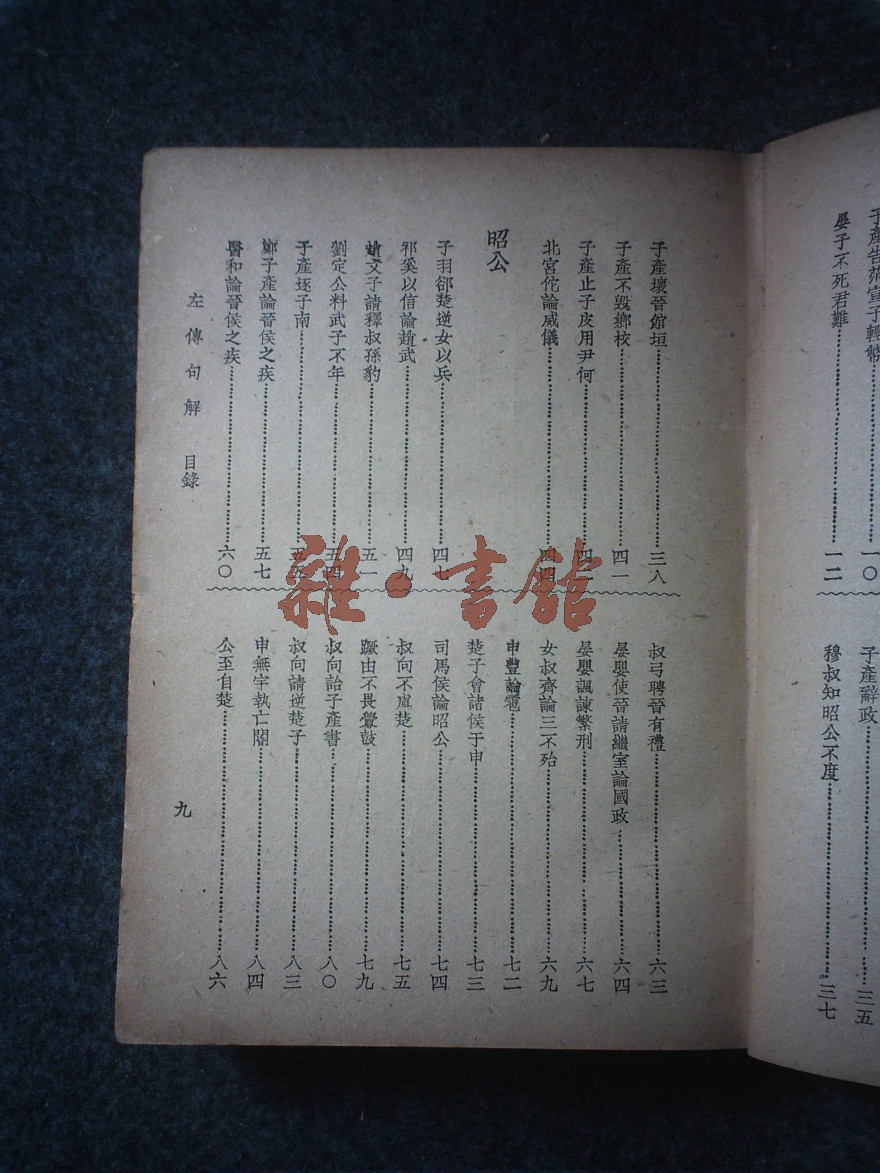 子產告范宣子輕幣……一〇
晏子不死君難……一二
子產辭政……三五
穆叔知昭公不度……三七
子產壞晉館垣……三八
子產不毀鄉校……四一
子產止子皮用尹何……四二
北宮佗論威儀……四四
昭公
子羽郤楚逆女以兵……四七
祁奚以信論趙武……四九
趙文子請釋叔孫豹……五一
劉定公料武子不年……五四
子產逐子南……五五
鄭子產論晉侯之疾……五七
醫和論晉侯之疾……六〇
叔弓聘晉有禮……六三
晏嬰使晉請繼室論國政……六四
晏嬰諷諫繁刑……六七
女叔齊論三不殆……六九
申豐論雹……七二
楚子會諸侯于申……七三
司馬侯論昭公……七四
叔向不虐楚……七五
蹶由不畏釁鼓……七九
叔向詒子產書……八〇
叔向請逆楚子……八三
申無宇執亡閽……八四
公至自楚……八六
左傳句解 目錄
九
雜·書館